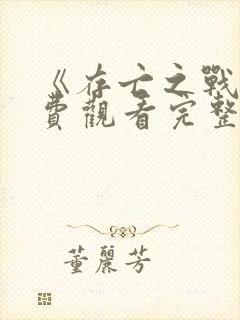 《存亡之戰
費觀看完整
董麗芳